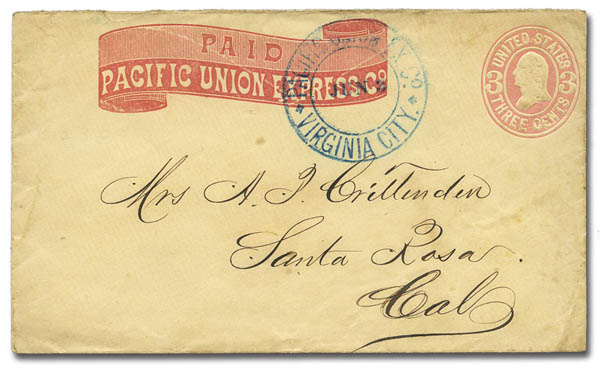 PAID
PACIFIC UNION EXPRESS Co
PACIFIC UNION EX. Co.
JUN
* VIRGINIA CITY. *
UNITED STATES
3 3
THREE CENTS
Mrs A. P. Crittenden
Santa Rosa.
Cal